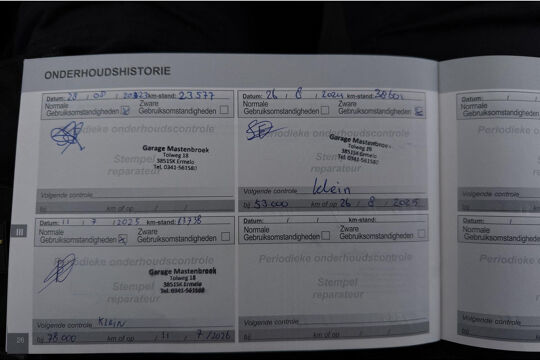 ONDERHOUDSHISTORIE
Datum: 28 / 08 / 2023 km-stand: 23577
Normale
Gebruiksomstandigheden
Zware
Gebruiksomstandigheden
Periodieke onderhoudscontrole
Garage Mastenbroek
Tolweg 18
3851SK Ermelo
Tel. 0341-561580
Stempel
reparateur
Volgende controle
bij km of op / /
Datum: 26 / 8 / 2024 km-stand:
Normale
Gebruiksomstandigheden
Zware
Gebruiksomstandigheden
Periodieke onderhoudscontrole
Garage Mastenbroek
Tolweg
3851SK Ermelo
Tel. 0341-561580
Stempel
reparateur
Volgende controle klein
bij 53.000 km of op 26 / 8 / 2025
Datum: 11 / 7 / 2025 km-stand:
Normale
Gebruiksomstandigheden
Zware
Gebruiksomstandigheden
Periodieke onderhoudscontrole
Garage Mastenbroek
Tolweg 18
3851SK Ermelo
Tel. 0341-561580
Stempel
reparateur
Volgende controle KLEIN
bij 78.000 km of op 11 / 7 / 2026
Datum: / / km-stand:
Normale
Gebruiksomstandigheden
Zware
Gebruiksomstandigheden
Periodieke onderhoudscontrole
Stempel
reparateur
Volgende controle
bij km of op / /
Datum:
Normale
Gebruiksomstandigheden
Periodiek
Volgende controle
bij
Datum: /
Normale
Gebruiksomstandigheden
Periodieke
Volgende controle
bij
III
26